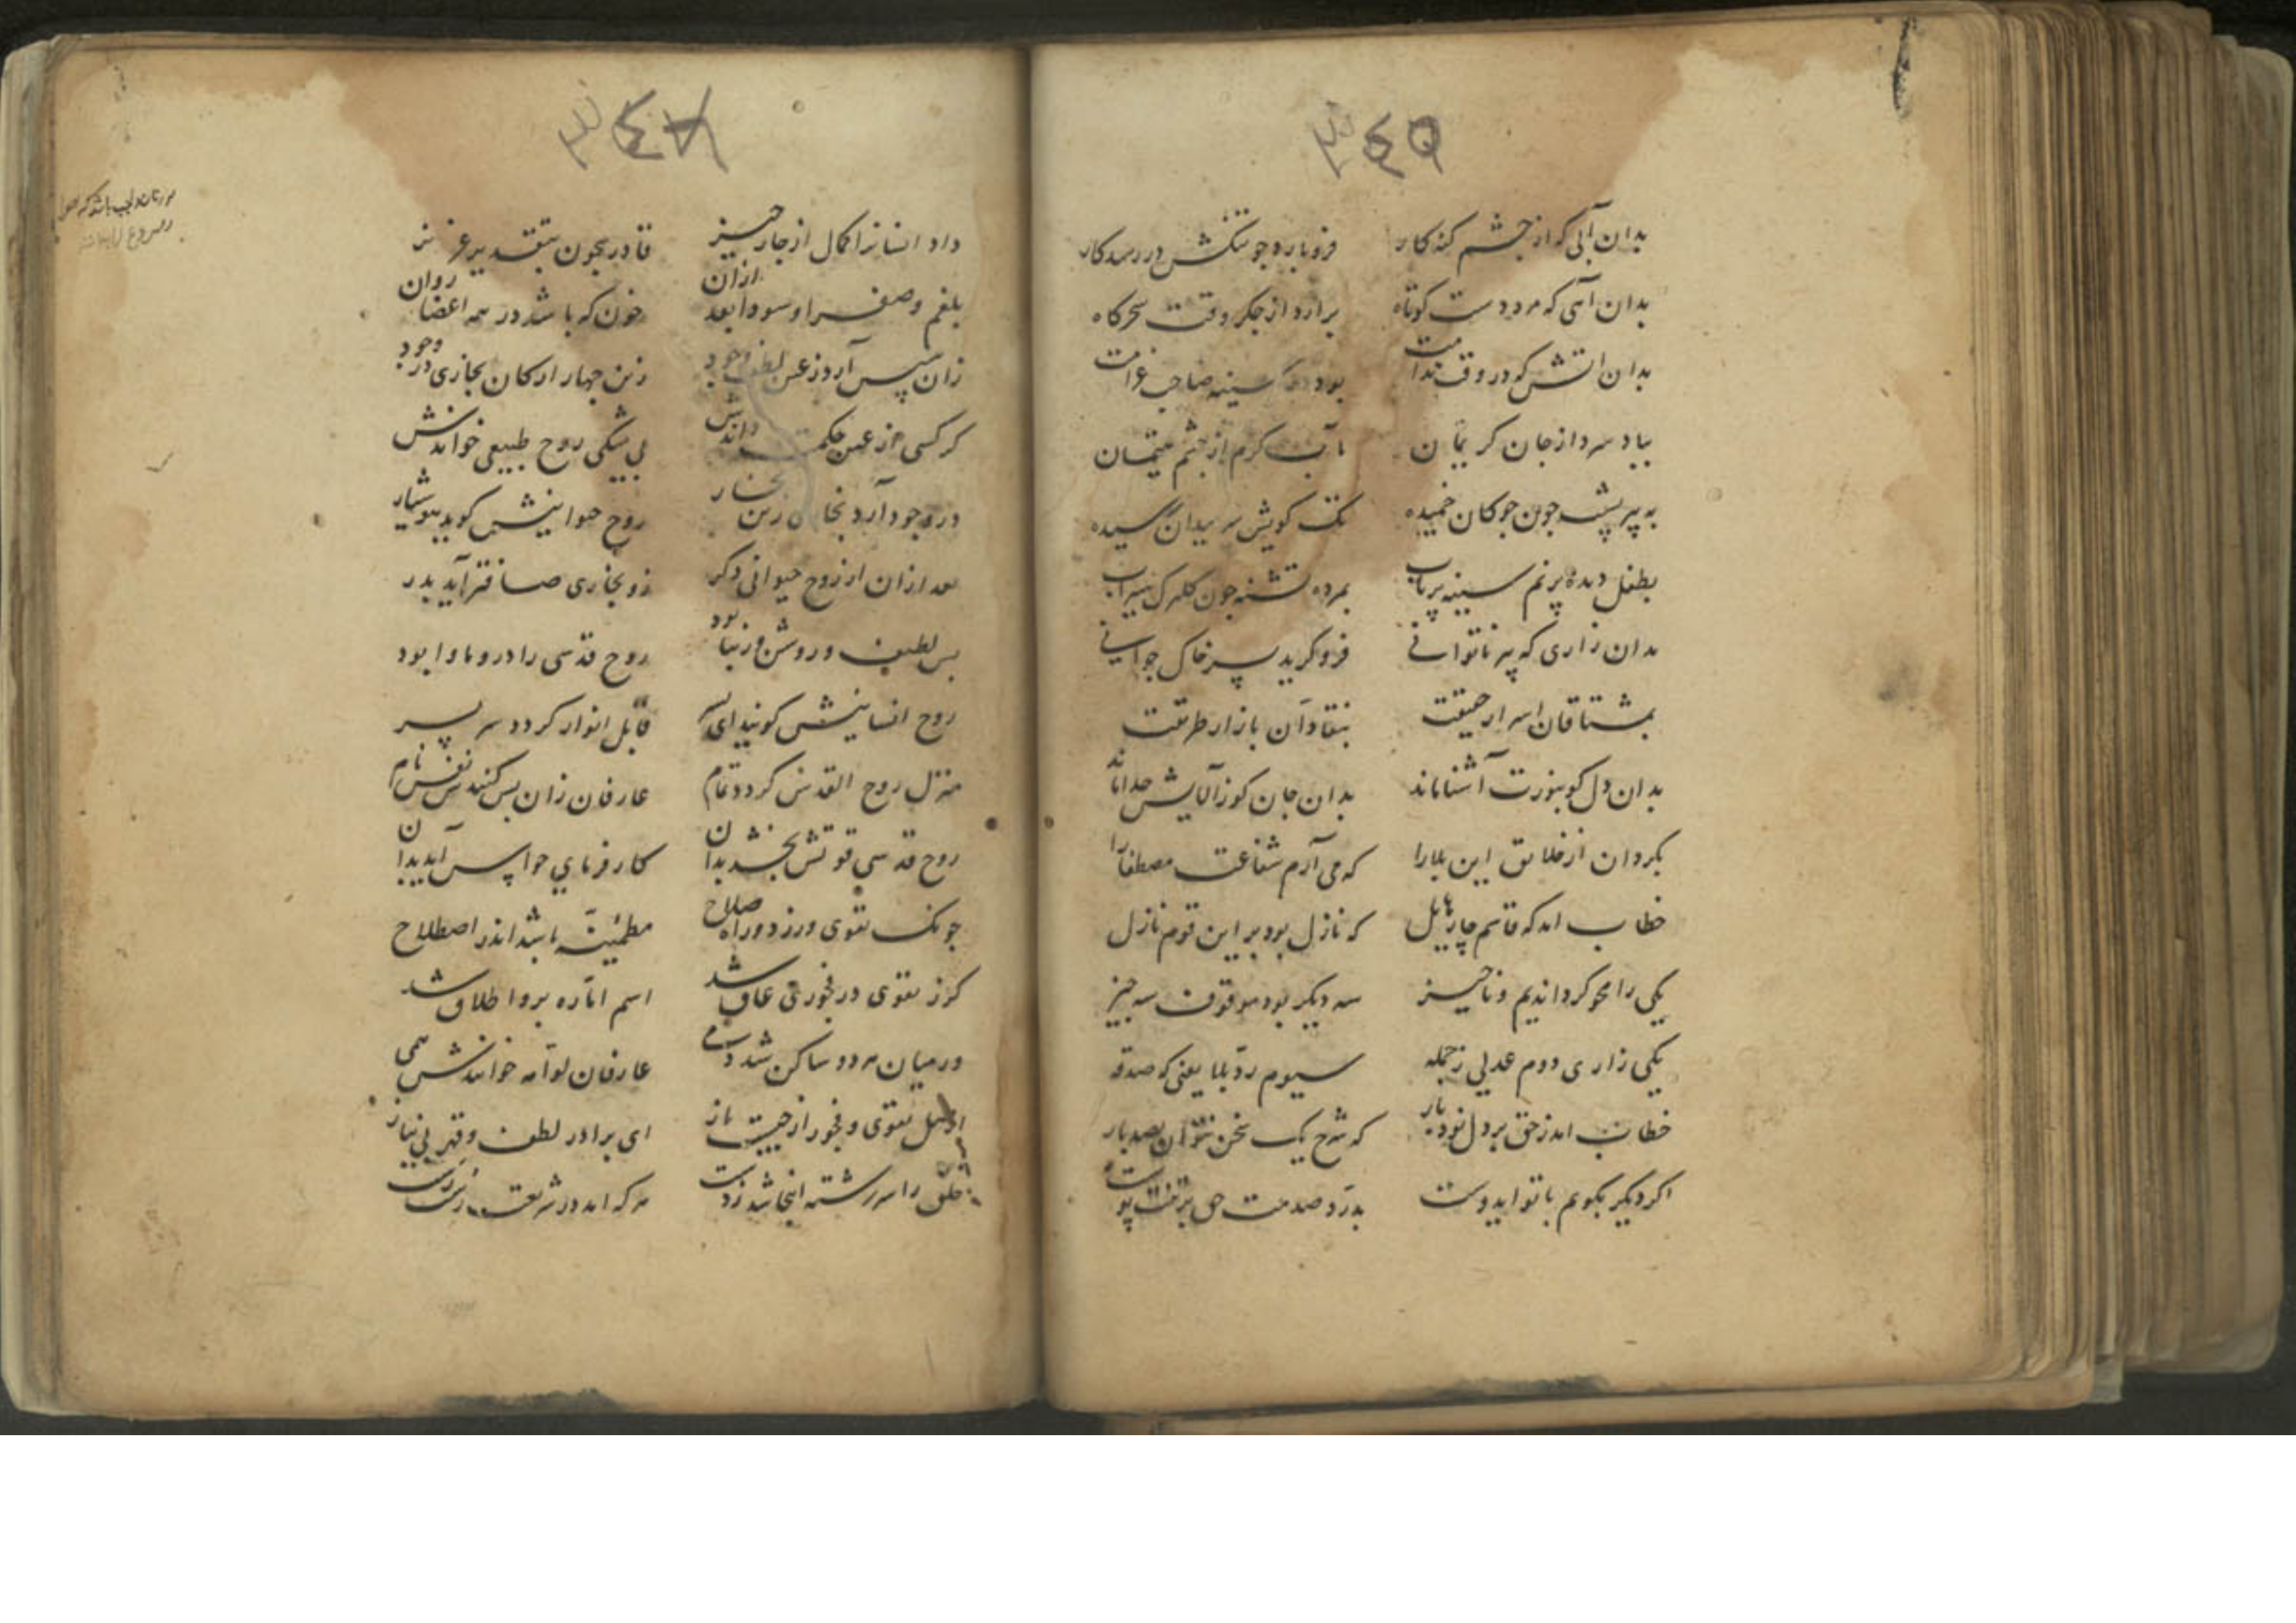 ٣٤٥
بدان آبی کر از چشم کند کار فروبارد جو تنکش در رسد کار
بدان آهی که مرد دست کوتاه برارد از جکر وقت سحرکاه
بدان اتش که در وقت ندامت بود در سینه صاحب غرامت
بباد سرد از جان کریمان بآب کرم از چشم یتیمان
به پیر پشت جون جوکان خمیده تک کویش سر بیدان رسیده
بطفل دیده پر نم سینه پر تاب بمرده تشنه جون کلبرک سیراب
بدان زاری که پیر ناتوانے فرو کرید بسر خاک جوانے
بمشتاقان اسرار حقیقت بنقادان بازار طریقت
بدان دل کو بنورت آشنا ماند بدان جان کوز آلایش جدا ماند
بکردان از خلایق این بلا را که می آرم شفاعت مصطفا را
خطاب امد که قاسم چار هایل که نازل بود بر این قوم نازل
یکی را محو کردانیم و ناچیز سه دیکر بود موقوف سه چیز
یکی زاری دوم عدلی ز جمله سیوم رد بلا یعنی که صدقه
خطاب امد ز حق بر دل نود بار که شرح یک سخن نتوان بصد بار
اکر دیکر بکویم با تو ایدوست بدرد صدمت حق بر تنت پوست
٣٤٧
داد انسانرا کمال از جار چیز قادر بیجون بتقدیر عزیز
بلغم و صفرا و سودا بعد ازان خون که باشد در همه اعضا روان
زان سپس آرد ز عین لطف وجود زین چهار ارکان بخاری در وجود
کر کسی از عین حکمت داندش بی شکی روح طبیعی خواندش
در وجود آرد بخاری زین بخار روح حیوانیش کوید هوشیار
بعد ازان از روح حیوانی دکر زو بخاری صافتر آید بدر
بس لطیف و روشن و زیبا بود روح قدسی را درو ماوا بود
روح انسانیش کویند ای پسر قابل انوار کردد سر بسر
منزل روح القدس کردد تمام عارفان زان پس کنندش نفس نام
روح قدسی قوتش بخشد بدان کار فرمای حواس آید بدان
جونک تقوی ورزد و راه صلاح مطمئنه باشد اندر اصطلاح
کوز تقوی در فجوری عاق شد اسم اماره برو اطلاق شد
ور میان هر دو ساکن شد دمی عارفان لوامه خوانندش همی
اصل تقوی و فجور از چیست باز ای برادر لطف و قهر بی نیاز
خلق را سر رشته اینجا شد ز دست هر که امد در شریعت رست رست